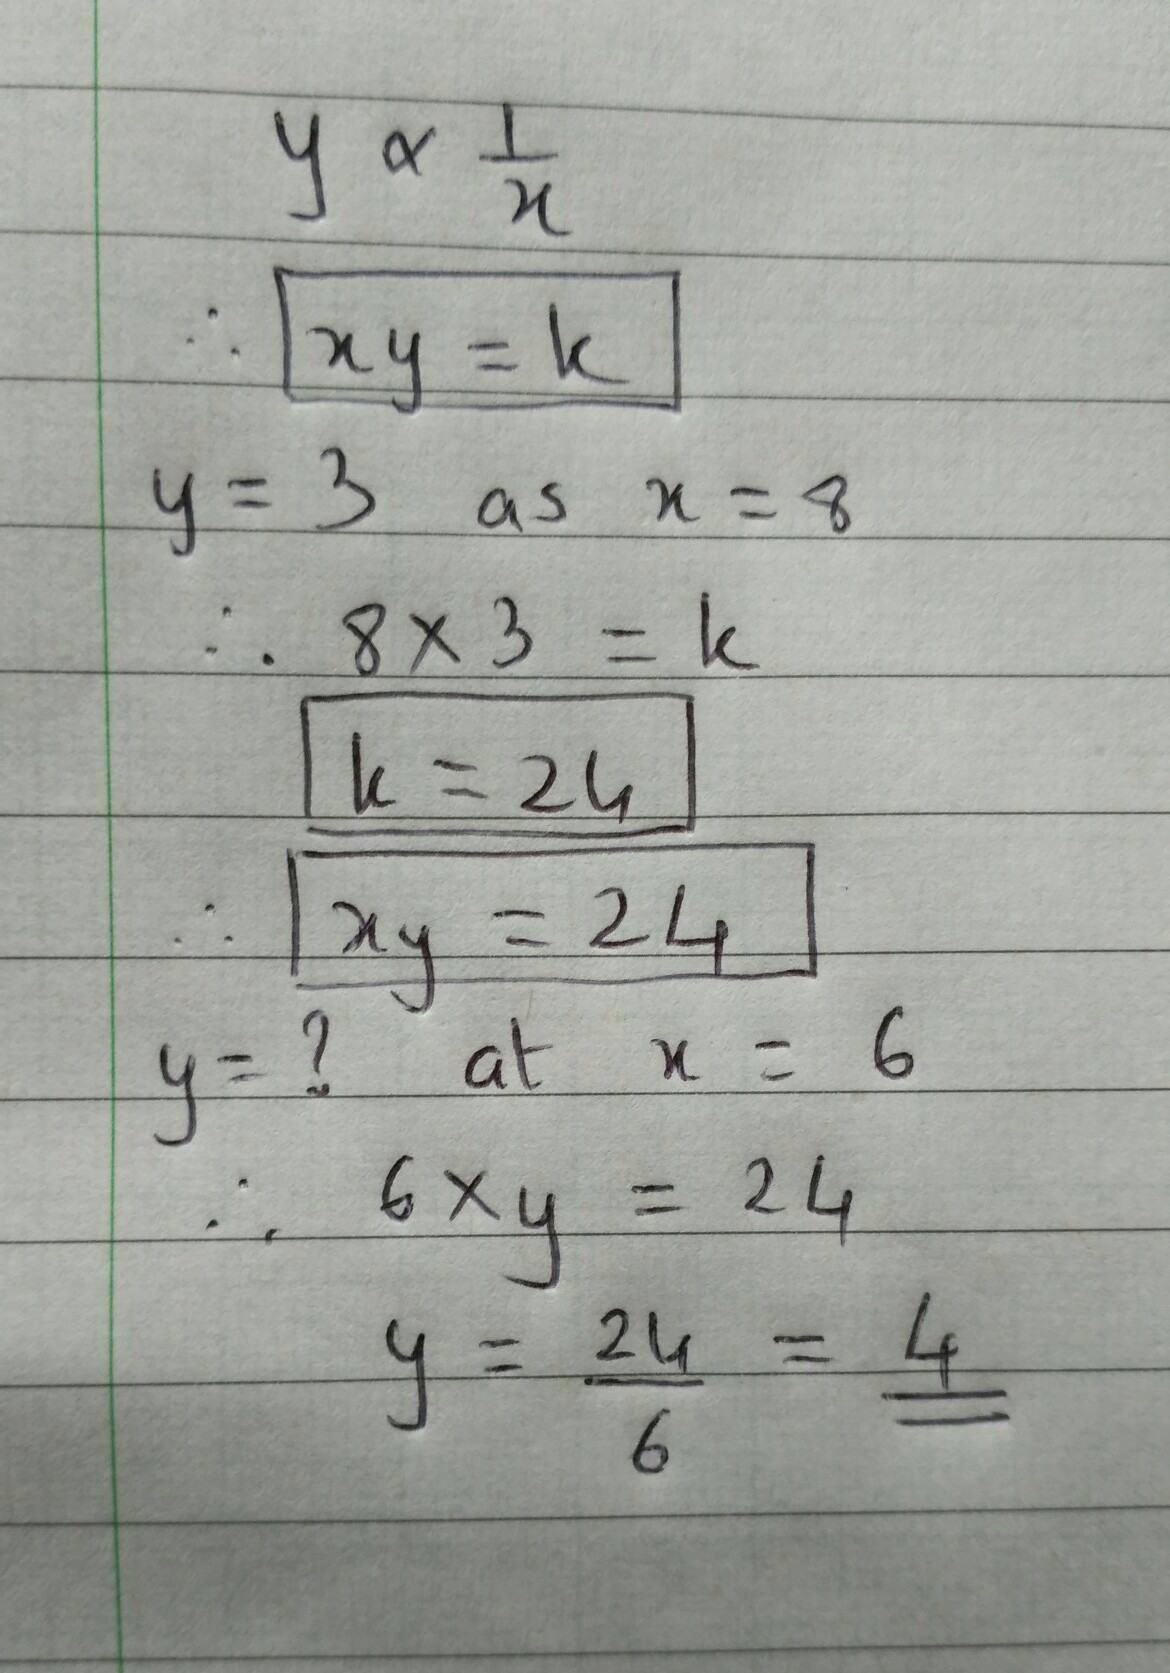 y ∝ 1/x
∴ xy = k
y = 3 as x = 8
∴ 8 × 3 = k
k = 24
∴ xy = 24
y = ? at x = 6
∴ 6 × y = 24
y = 24/6 = 4